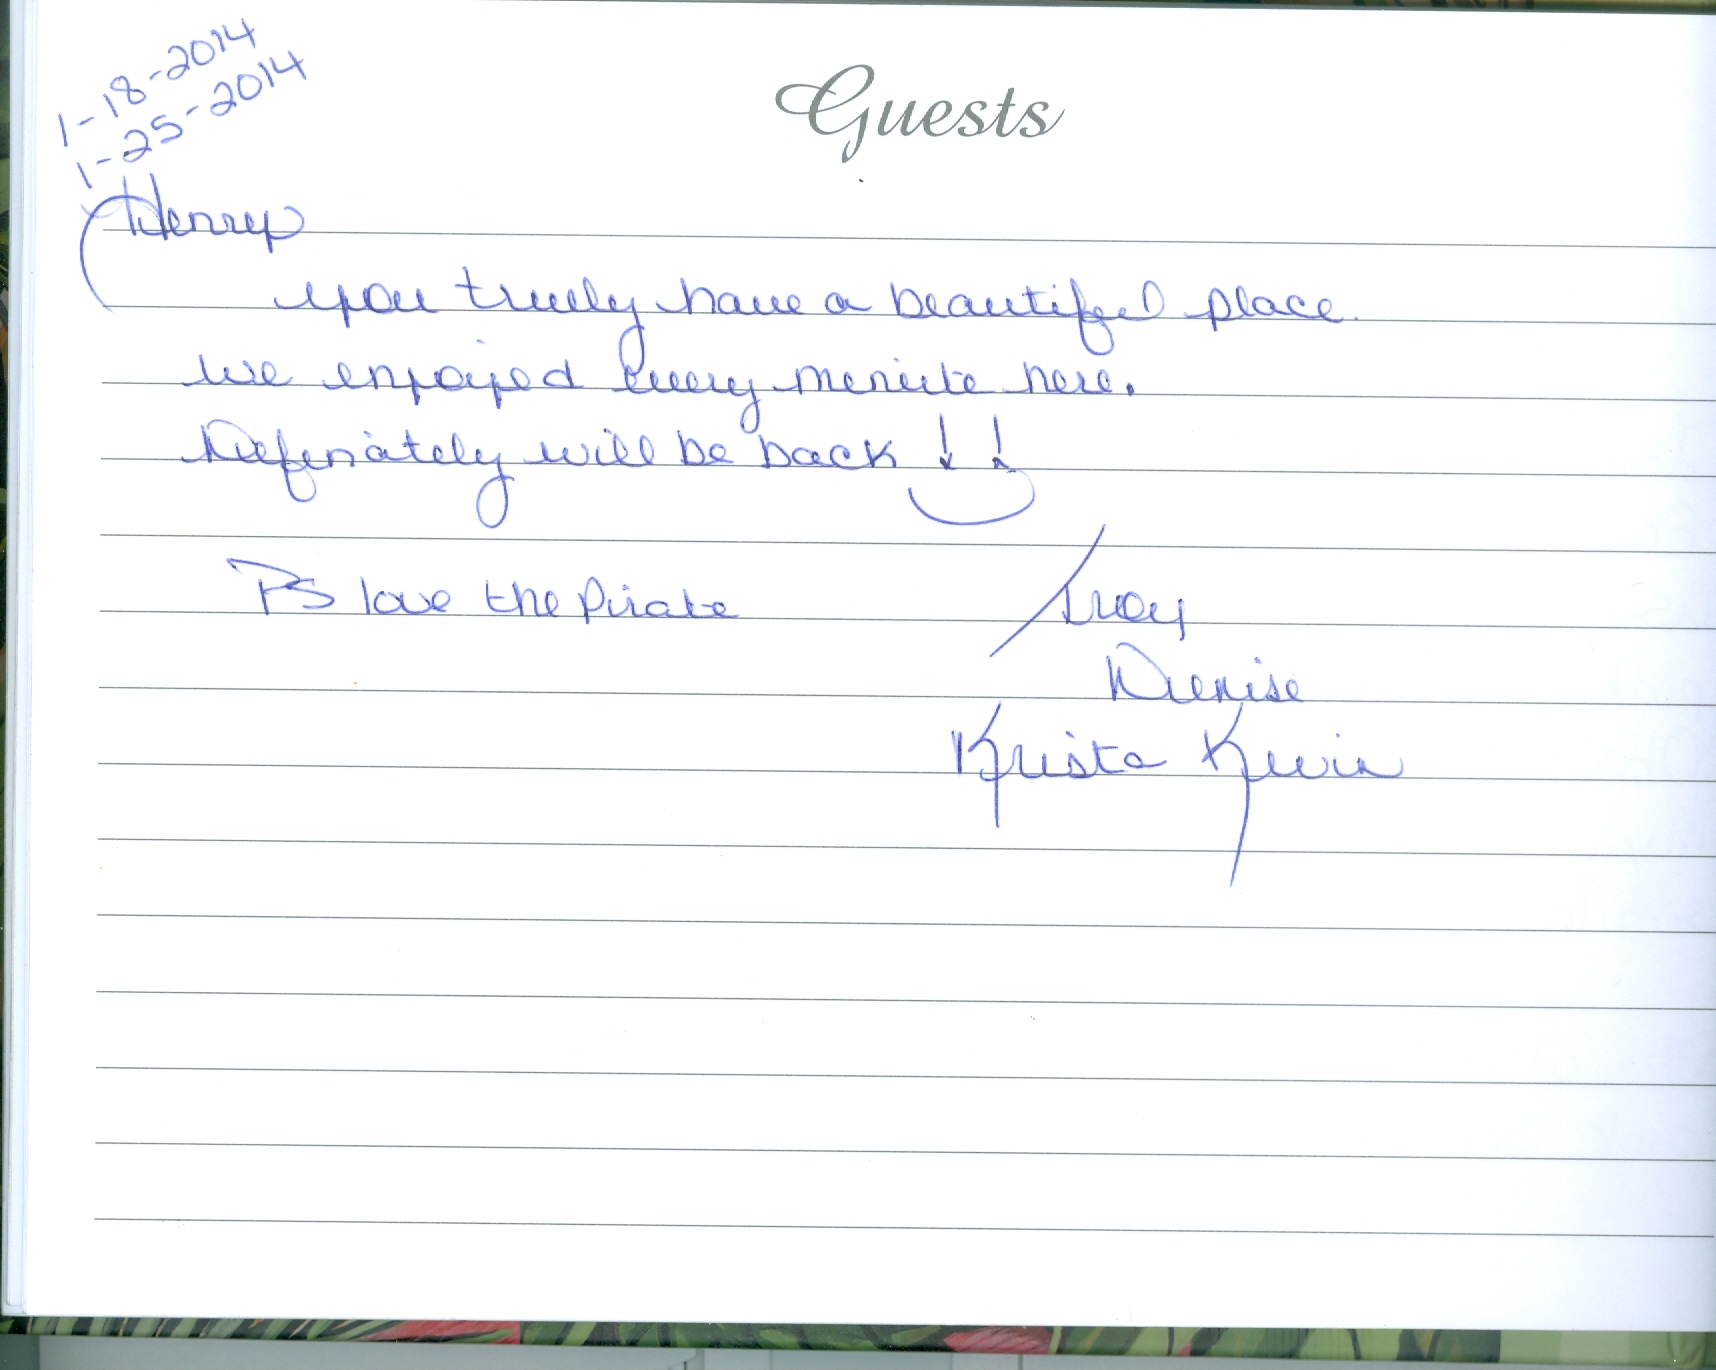 1-18-2014
1-25-2014
Guests
Henry
you truely have a beautiful place.
we enjoyed every minute here.
Definately will be back !!
PS love the Pirate
Troy
Denise
Krista Kevin